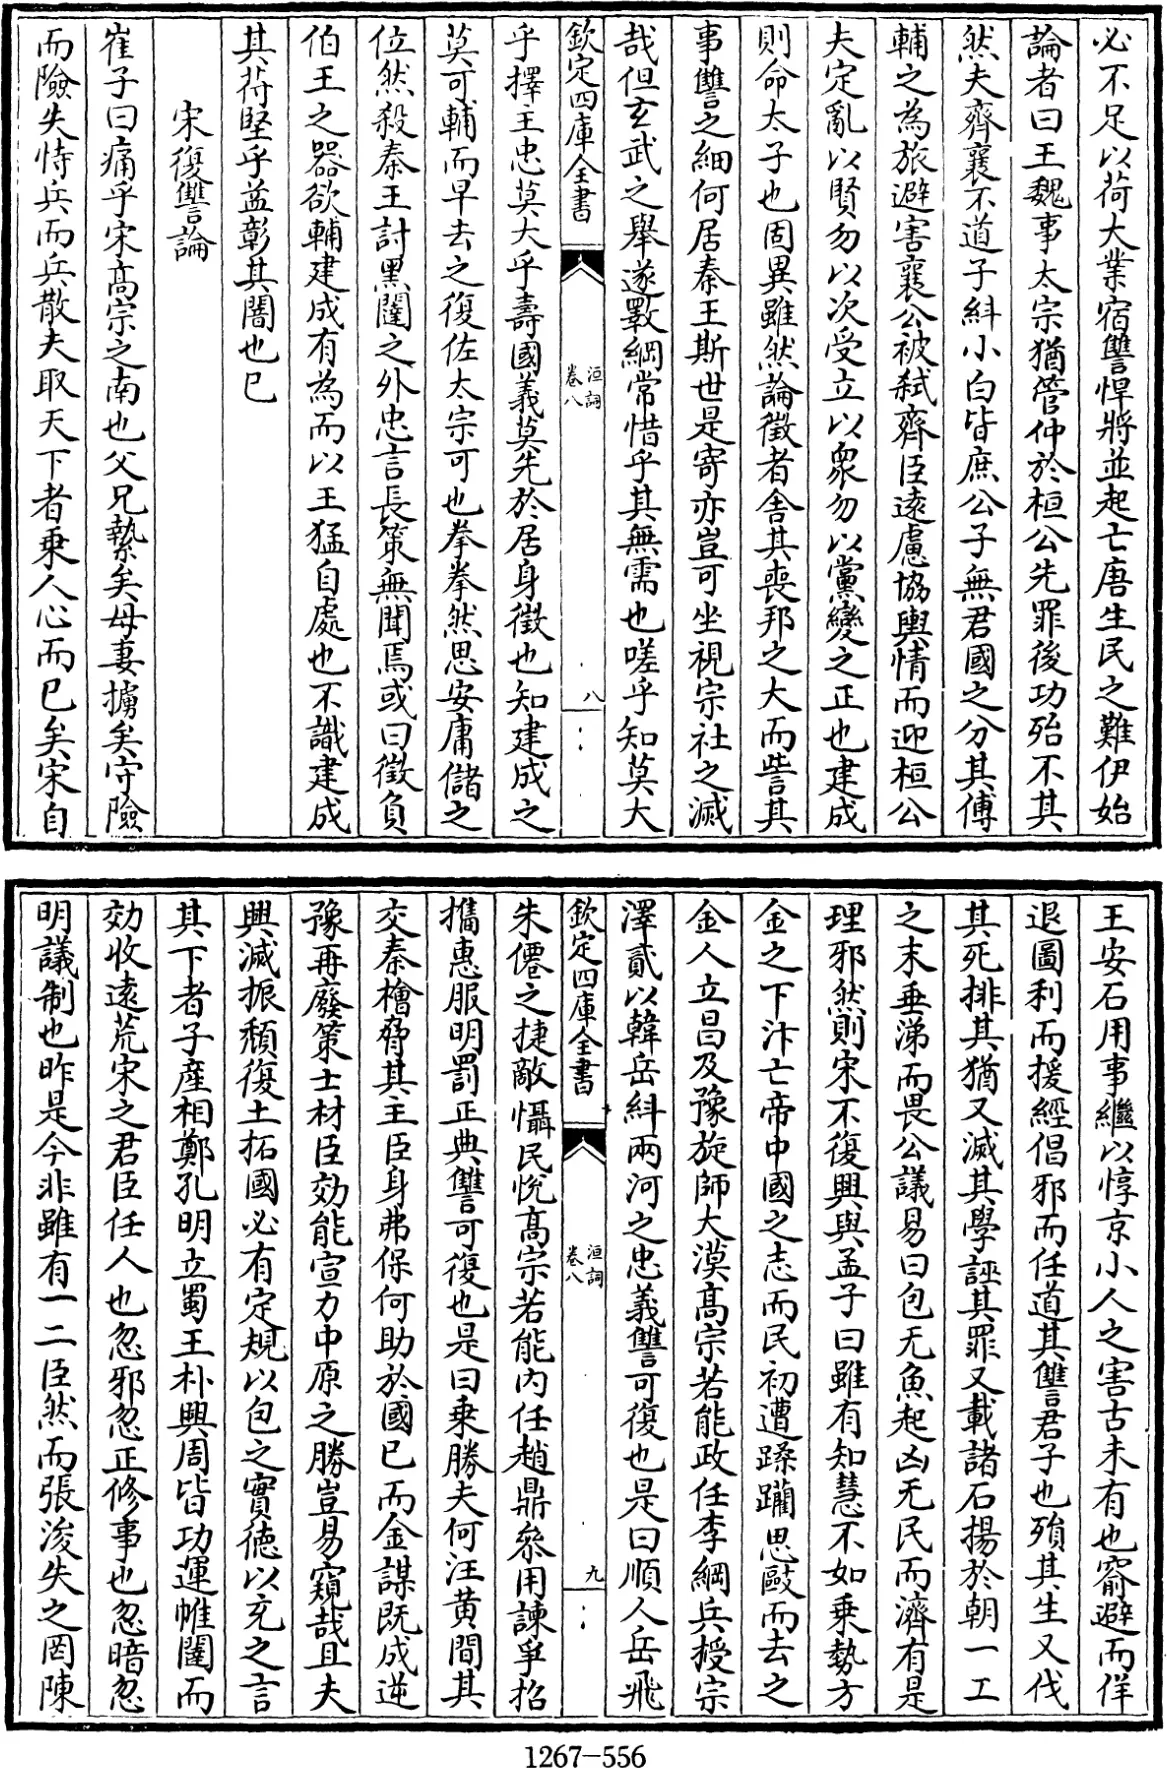 必不足以荷大業宿讐悍將並起亡唐生民之難伊始
論者曰王魏事太宗猶管仲於桓公先罪後功殆不其
然夫齊襄不道子糾小白皆庶公子無君國之分其傅
輔之為旅避害襄公被弑齊臣遠慮協輿情而迎桓公
夫定亂以賢勿以次受立以衆勿以黨變之正也建成
則命太子也固異雖然論徵者舍其喪邦之大而訾其
事讐之細何居秦王斯世是寄亦豈可坐視宗社之滅
哉但玄武之舉遂斁綱常惜乎其無需也嗟乎知莫大
欽定四庫全書
洹詞
卷八
八
乎擇主忠莫大乎壽國義莫先於居身徵也知建成之
莫可輔而早去之復佐太宗可也拳拳然思安庸儲之
位然殺秦王討黑闥之外忠言長策無聞焉或曰徵負
伯王之器欲輔建成有為而以王猛自處也不識建成
其苻堅乎益彰其闇也已
宋復讐論
崔子曰痛乎宋高宗之南也父兄縶矣母妻擄矣守險
而險失恃兵而兵散夫取天下者乗人心而已矣宋自
王安石用事繼以惇京小人之害古未有也竊避而佯
退圖利而援經倡邪而任道其讐君子也殞其生又伐
其死排其猶又滅其學誣其罪又載諸石揚於朝一工
之末垂涕而畏公議易曰包无魚起凶无民而濟有是
理邪然則宋不復興與孟子曰雖有知慧不如乗勢方
金之下汴亡帝中國之志而民初遭蹂躪思敺而去之
金人立昌及豫旋師大漠高宗若能政任李綱兵授宗
澤貳以韓岳糾兩河之忠義讐可復也是曰順人岳飛
欽定四庫全書
洹詞
卷八
九
朱僊之捷敵懾民悅高宗若能内任趙鼎叅用諫爭招
攜惠服明罰正典讐可復也是曰乗勝夫何汪黄間其
交秦檜脅其主臣身弗保何助於國已而金謀既成逆
豫再廢策士材臣効能宣力中原之勝豈易窺哉且夫
興滅振頽復土拓國必有定規以包之實德以充之言
其下者子產相鄭孔明立蜀王朴興周皆功運帷闥而
効收遠荒宋之君臣任人也忽邪忽正修事也忽暗忽
明議制也昨是今非雖有一二臣然而張浚失之罔陳
1267-556